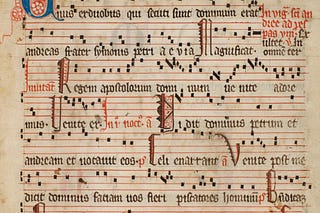 Unus ex duobus qui secuti sunt dominum erat
andreas frater symonis petri a e v i a Magnificat.
Regem apostolorum dominum uenite adore
mus. Uenite a Vidit dominus petrum et
andream et uocauit eos. p Celi enarrant a Venite post me
dicit dominus faciam uos fieri piscatores hominum p